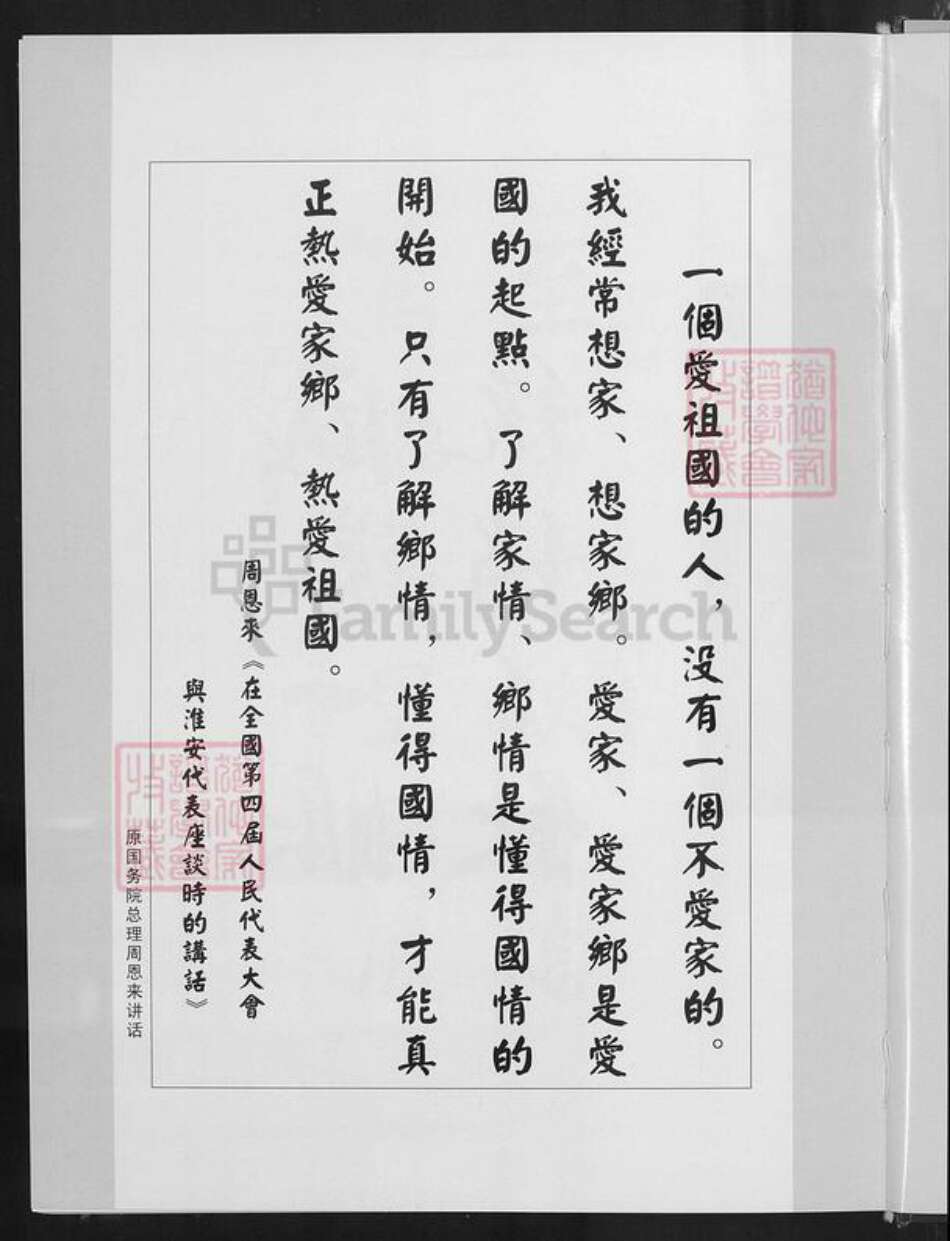 一個愛祖國的人，没有一個不愛家的。
我經常想家、想家鄉。愛家、愛家鄉是愛
國的起點。了解家情、鄉情是懂得國情的
開始。只有了解鄉情，懂得國情，才能真
正熱愛家鄉、熱愛祖國。
周恩來《在全國第四屆人民代表大會
與淮安代表座談時的講話》
原国务院总理周恩来讲话
FamilySearch